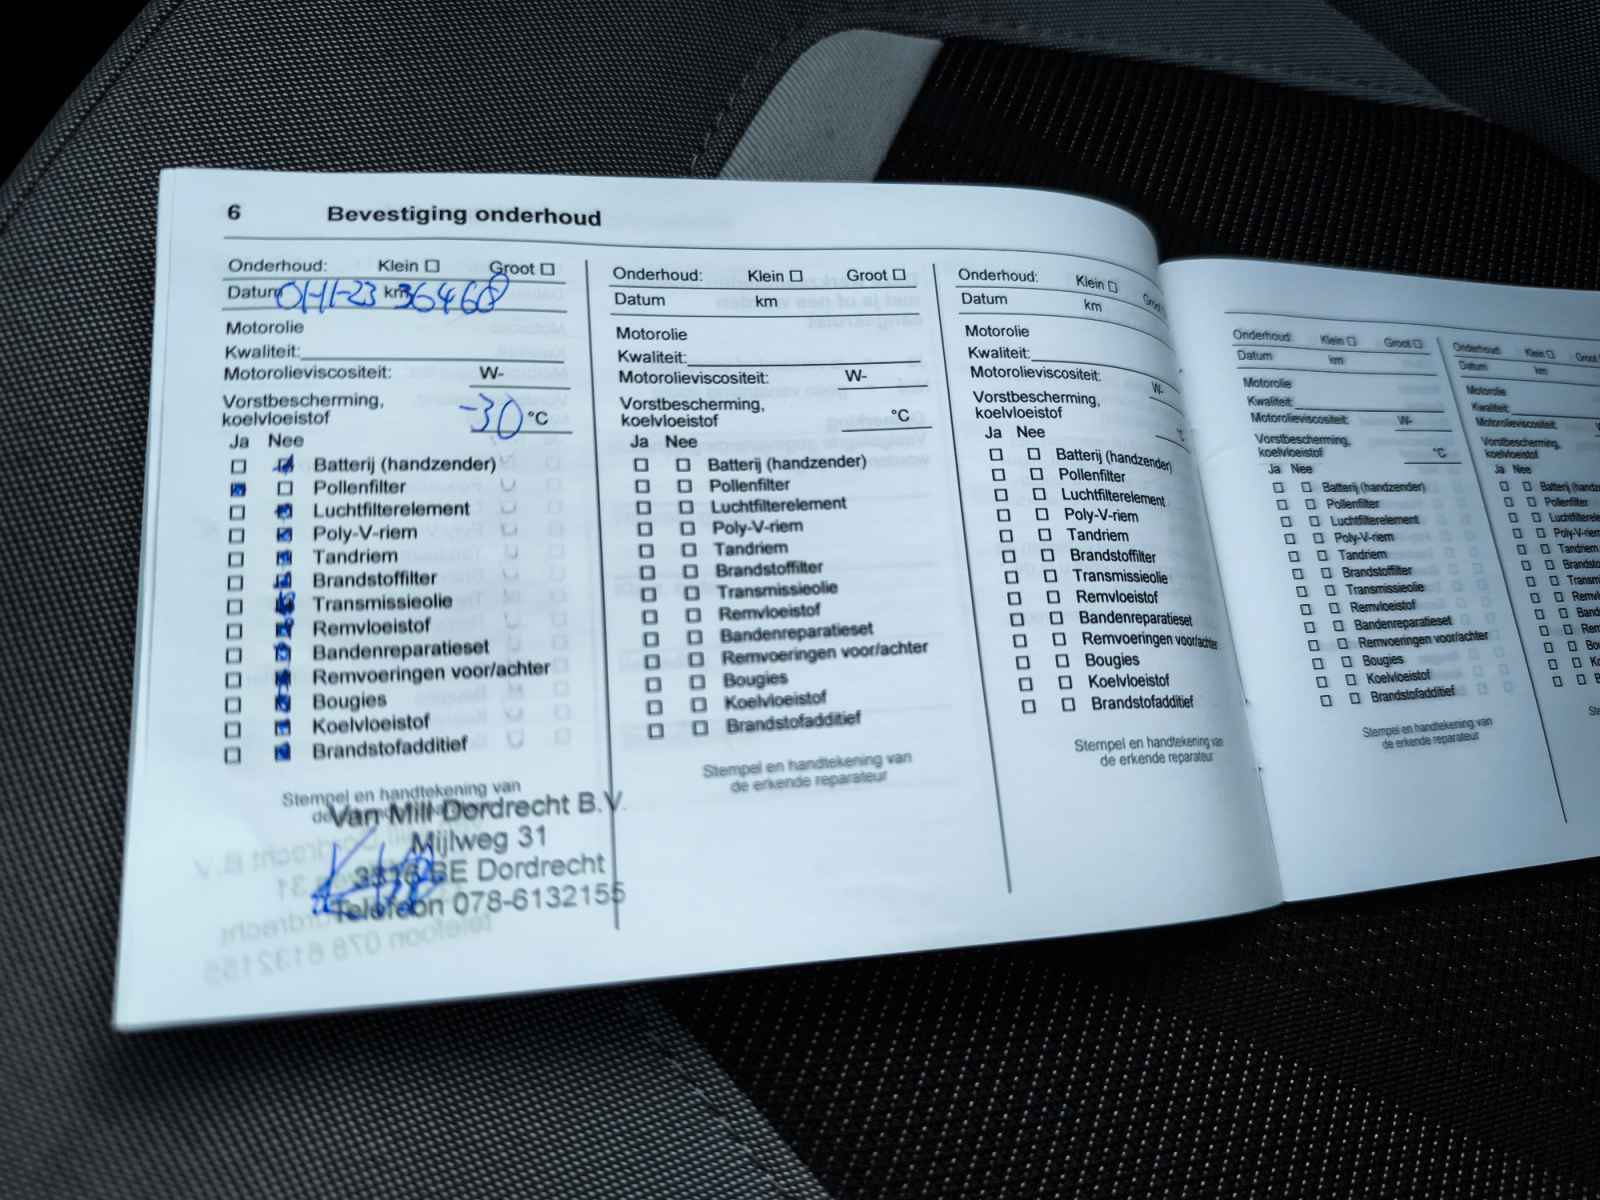 6 Bevestiging onderhoud
Onderhoud: Klein Groot
Datum 01-11-23 km 36468
Motorolie
Kwaliteit:
Motorolieviscositeit: W-
Vorstbescherming,
koelvloeistof -30 °C
Ja Nee
Batterij (handzender)
Pollenfilter
Luchtfilterelement
Poly-V-riem
Tandriem
Brandstoffilter
Transmissieolie
Remvloeistof
Bandenreparatieset
Remvoeringen voor/achter
Bougies
Koelvloeistof
Brandstofadditief
Stempel en handtekening van
Van Mill Dordrecht B.V.
Mijlweg 31
3316 BE Dordrecht
Telefoon 078-6132155
Onderhoud: Klein Groot
Datum km
Motorolie
Kwaliteit:
Motorolieviscositeit: W-
Vorstbescherming,
koelvloeistof °C
Ja Nee
Batterij (handzender)
Pollenfilter
Luchtfilterelement
Poly-V-riem
Tandriem
Brandstoffilter
Transmissieolie
Remvloeistof
Bandenreparatieset
Remvoeringen voor/achter
Bougies
Koelvloeistof
Brandstofadditief
Stempel en handtekening van
de erkende reparateur
Onderhoud: Klein
Datum km
Motorolie
Kwaliteit:
Motorolieviscositeit: W-
Vorstbescherming,
koelvloeistof
Ja Nee
Batterij (handzender)
Pollenfilter
Luchtfilterelement
Poly-V-riem
Tandriem
Brandstoffilter
Transmissieolie
Remvloeistof
Bandenreparatieset
Remvoeringen voor/achter
Bougies
Koelvloeistof
Brandstofadditief
Stempel en handtekening van
de erkende reparateur
Onderhoud: Klein Groot
Datum km
Motorolie
Kwaliteit:
Motorolieviscositeit: W-
Vorstbescherming,
koelvloeistof °C
Ja Nee
Batterij (handzender)
Pollenfilter
Luchtfilterelement
Poly-V-riem
Tandriem
Brandstoffilter
Transmissieolie
Remvloeistof
Bandenreparatieset
Remvoeringen voor/achter
Bougies
Koelvloeistof
Brandstofadditief
Stempel en handtekening van
de erkende reparateur
Onderhoud: Klein Groot
Datum km
Motorolie
Kwaliteit:
Motorolieviscositeit:
Vorstbescherming,
koelvloeistof
Ja Nee